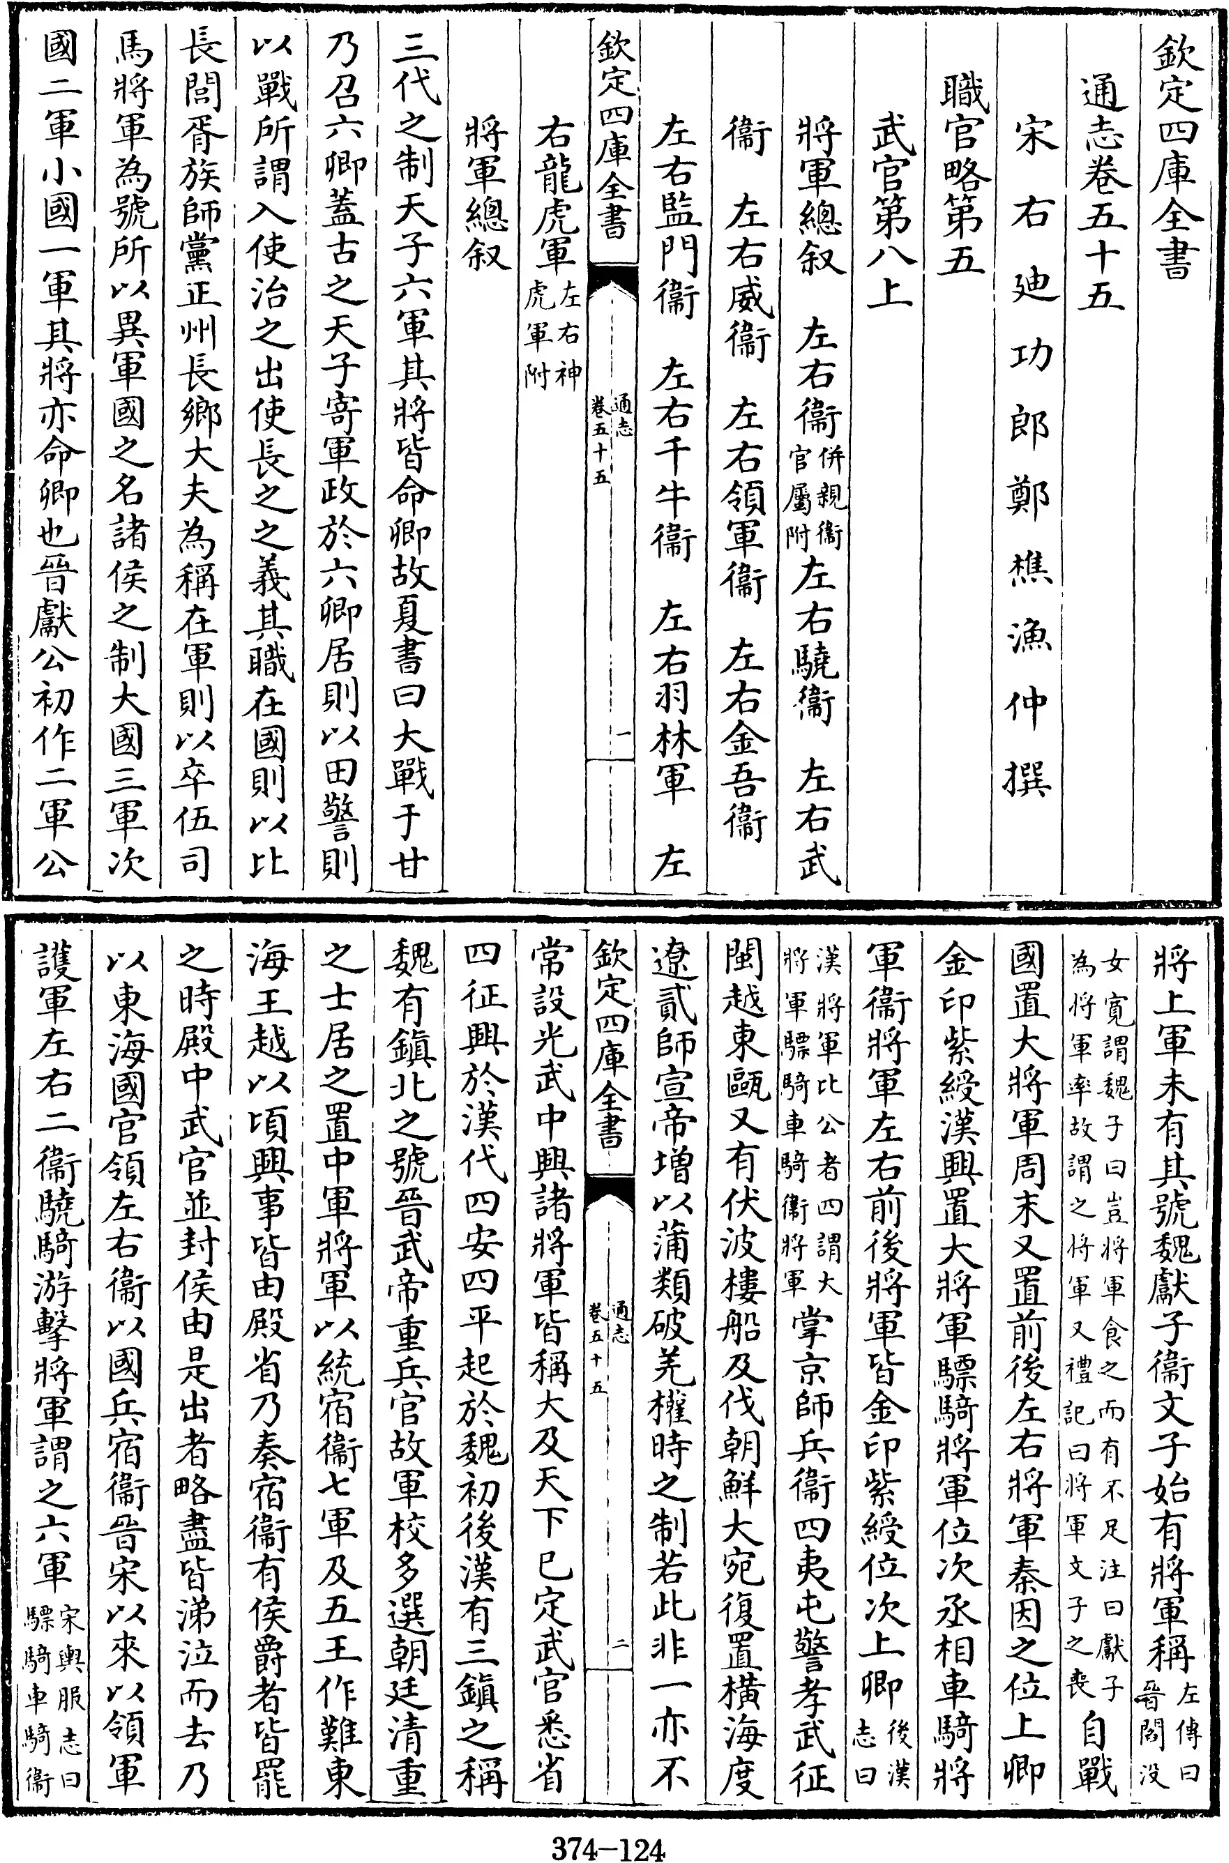 欽定四庫全書
通志卷五十五
宋右迪功郎鄭樵漁仲撰
職官略第五
武官第八上
將軍總叙　左右衞併親衞官屬附左右驍衞　左右武
衞　左右威衞　左右領軍衞　左右金吾衞
左右監門衞　左右千牛衞　左右羽林軍　左
欽定四庫全書　通志卷五十五　一
右龍虎軍左右神虎軍附
將軍總叙
三代之制天子六軍其將皆命卿故夏書曰大戰于甘
乃召六卿蓋古之天子寄軍政於六卿居則以田警則
以戰所謂入使治之出使長之之義其職在國則以比
長閭胥族師黨正州長鄉大夫為稱在軍則以卒伍司
馬將軍為號所以異軍國之名諸侯之制大國三軍次
國二軍小國一軍其將亦命卿也晉獻公初作二軍公
將上軍未有其號魏獻子衞文子始有將軍稱左傳曰晉閻沒
女寬謂魏子曰豈將軍食之而有不足注曰獻子為將軍率故謂之將軍又禮記曰將軍文子之喪自戰
國置大將軍周末又置前後左右將軍秦因之位上卿
金印紫綬漢興置大將軍驃騎將軍位次丞相車騎將
軍衞將軍左右前後將軍皆金印紫綬位次上卿後漢志曰
漢將軍比公者四謂大將軍驃騎車騎衞將軍掌京師兵衞四夷屯警孝武征
閩越東甌又有伏波樓船及伐朝鮮大宛復置橫海度
遼貳師宣帝增以蒲類破羌權時之制若此非一亦不
欽定四庫全書　通志卷五十五　二
常設光武中興諸將軍皆稱大及天下已定武官悉省
四征興於漢代四安四平起於魏初後漢有三鎮之稱
魏有鎮北之號晉武帝重兵官故軍校多選朝廷清重
之士居之置中軍將軍以統宿衞七軍及五王作難東
海王越以頃興事皆由殿省乃奏宿衞有侯爵者皆罷
之時殿中武官並封侯由是出者略盡皆涕泣而去乃
以東海國官領左右衞以國兵宿衞晉宋以來以領軍
護軍左右二衞驍騎游擊將軍謂之六軍宋輿服志曰驃騎車騎衞
374-124